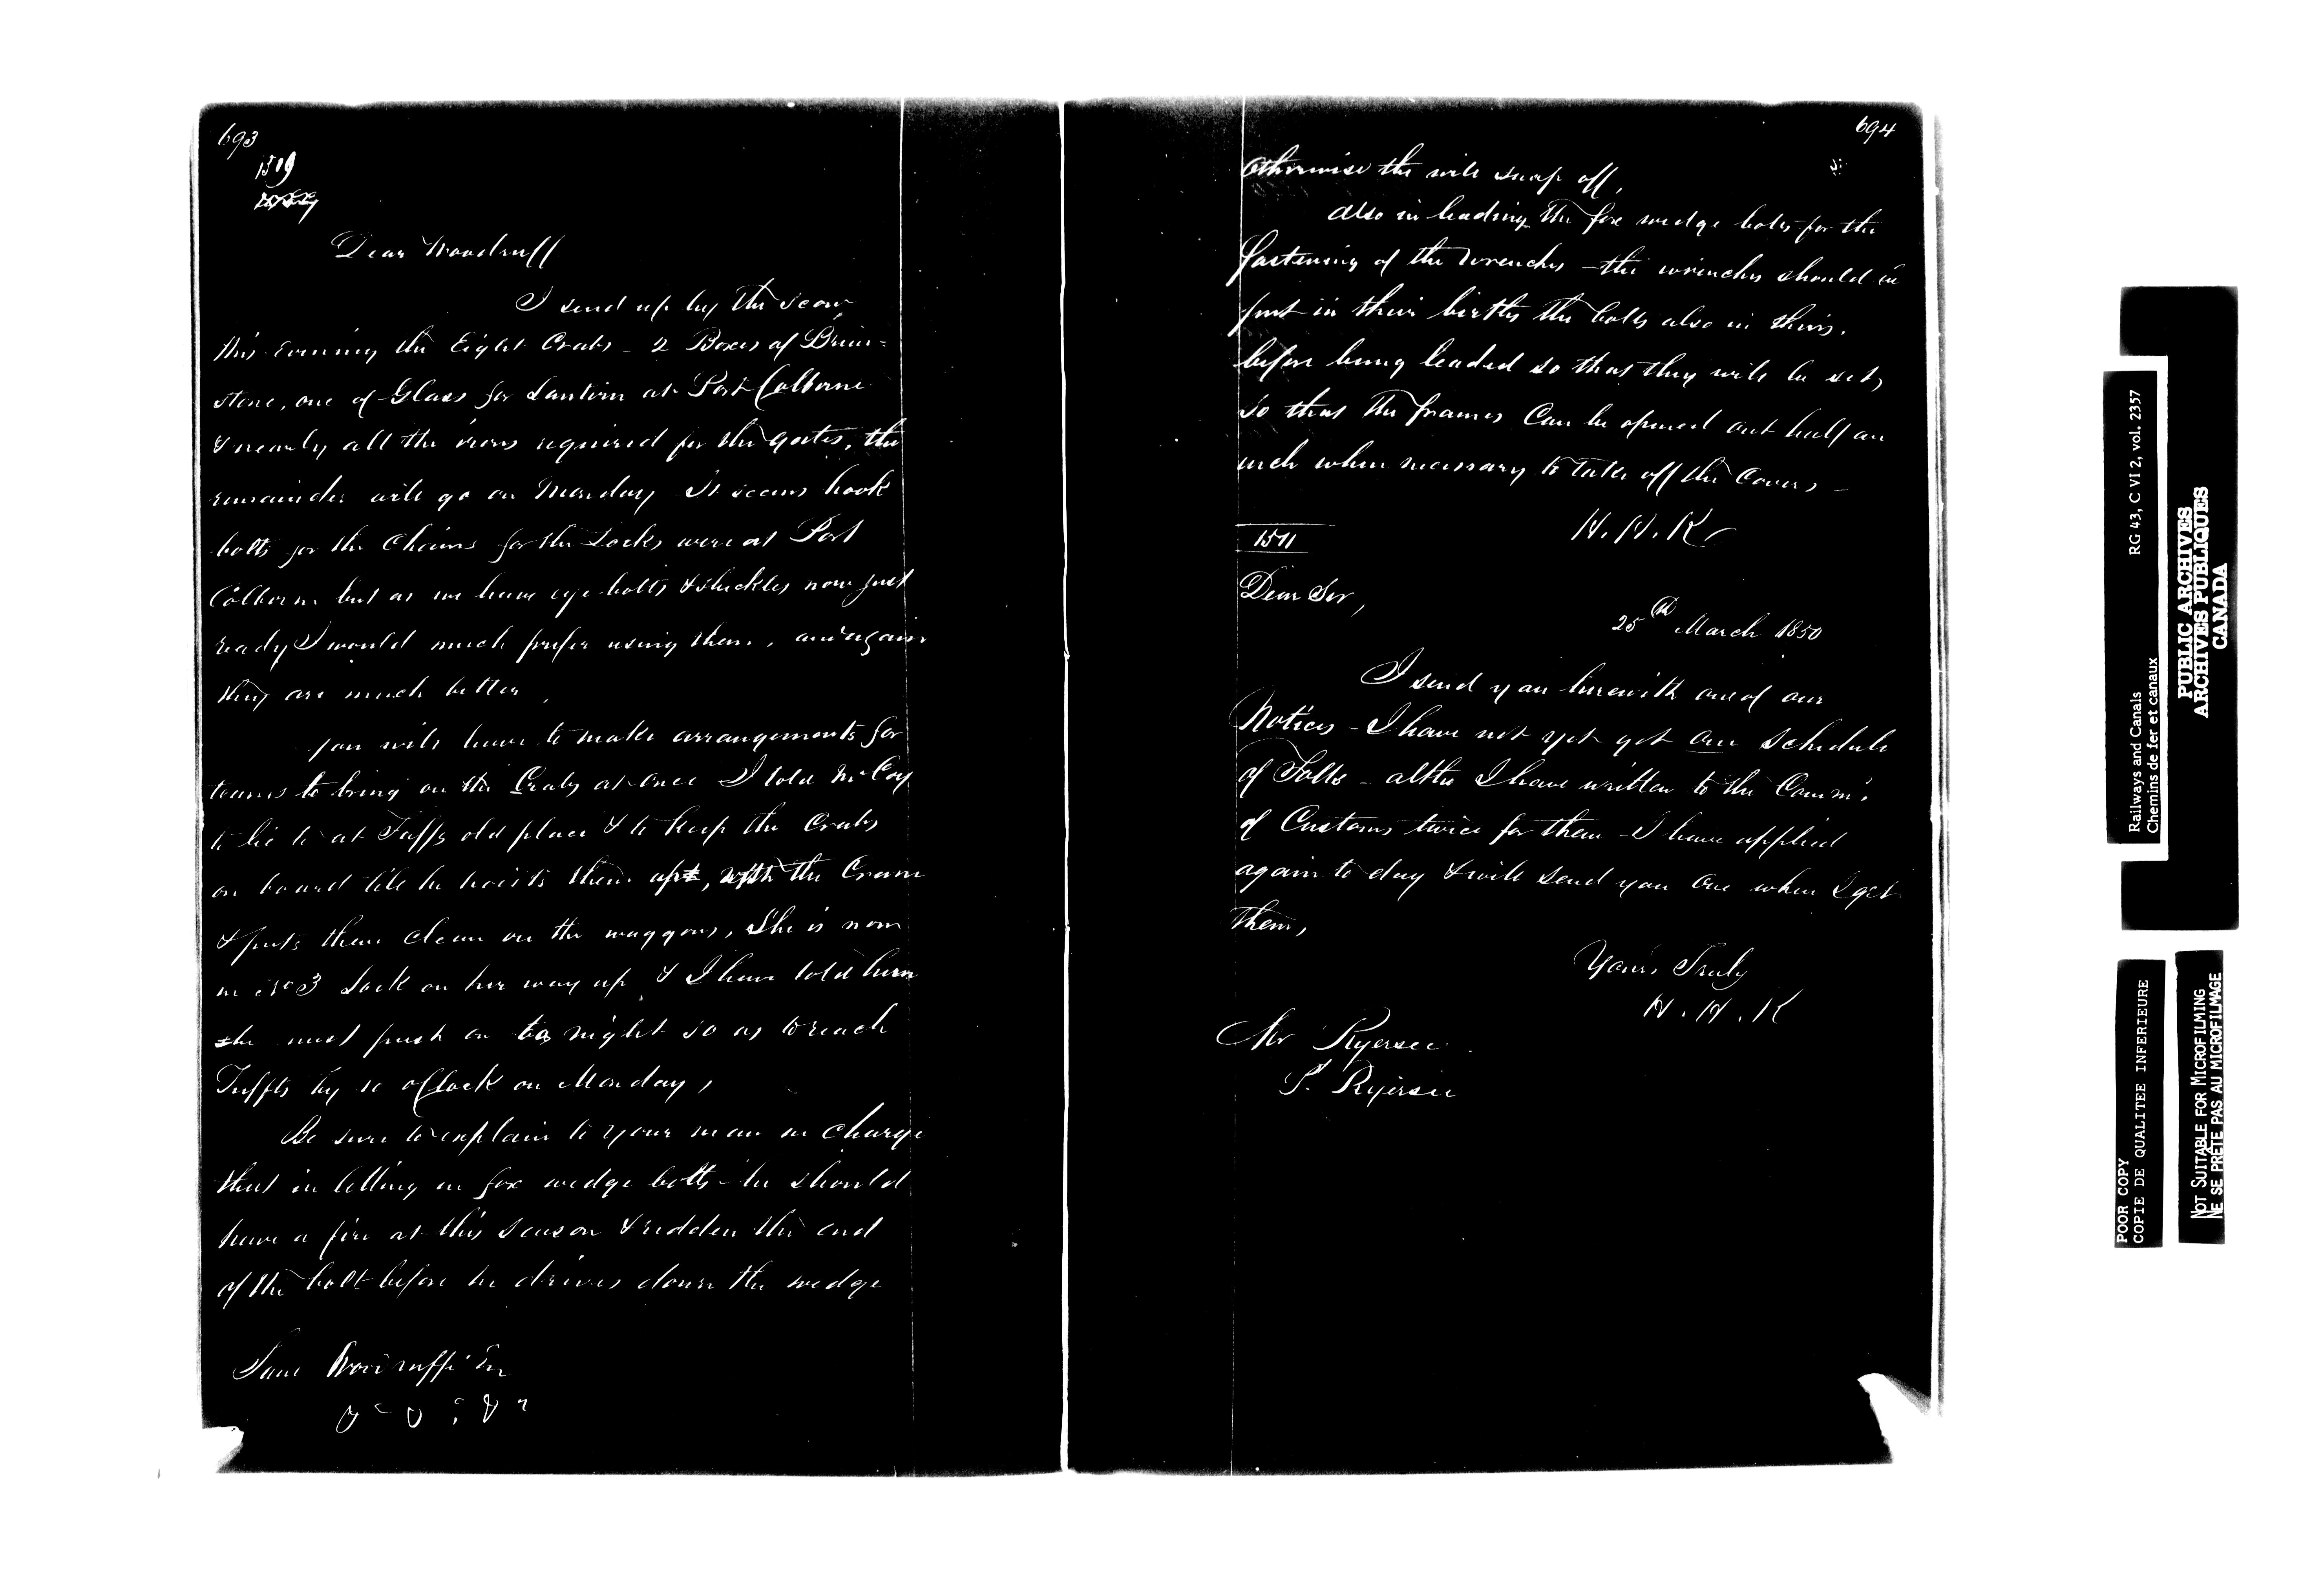 693
1519
Dear Woodruff
I send up by the scow
this Evening the Eight Crabs - 2 Boxes of Brim=
stone, one of Glass for Lantern at Port Colborne
& nearly all the irons required for the gates, the
remainder will go on Monday It seems hook
bolts for the Chains for the Locks were at Port
Colborne but as we have eye bolts & shackles now just
ready I would much prefer using them, and again
they are much better,
you will have to make arrangements for
teams to bring on the Crabs at once I told McCoy
to lie to at Tuffs old place & to keep the Crabs
on board till he hoists them up, with the Crane
& puts them clean on the waggons, She is now
in No 3 Lock on her way up, & I have told him
he must push on to night so as to reach
Tuffts by 10 oClock on Monday,
Be sure to explain to your man in charge
that in letting in fox wedge bolts - he should
have a fire at this season & redden the end
of the bolt before he drives down the wedge
Saml Woodruff Esq
694
Otherwise the will snap off,
also in leading the fox wedge bolts for the
fastening of the Wrenches - the wrenches should be
put in their births the bolts also in theirs,
before being leaded so that they will be set,
so that the frames Can be opened out half an
inch when necessary to take off the Covers -
H. H. K
1511
Dear Sir,
25th March 1850
I send you herewith one of our
Notices - I have not yet got one Schedule
of Tolls - altho I have written to the Comm's
of Customs twice for them - I have applied
again to day & will send you one when I get
them,
Yours Truly
H. H. K
Mr Ryerse
P. Ryerse
Railways and Canals RG 43, C VI 2, vol. 2357
Chemins de fer et canaux
PUBLIC ARCHIVES
ARCHIVES PUBLIQUES
CANADA
POOR COPY
COPIE DE QUALITEE INFERIEURE
NOT SUITABLE FOR MICROFILMING
NE SE PRÊTE PAS AU MICROFILMAGE